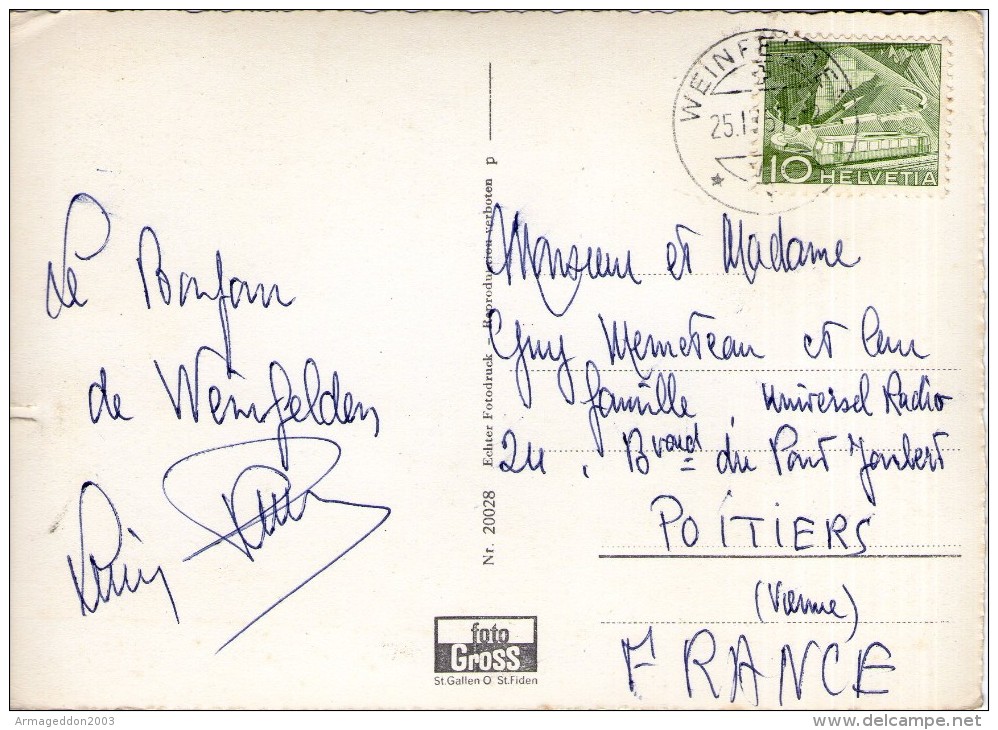 WEINFELDEN
10 HELVETIA
Le Bonjour
de Weinfelden
Nr. 20028 Echter Fotodruck – Reproduktion verboten p
Monsieur et Madame
Guy Memeteau et leur
famille, Universel Radio
24, Bvard du Pont Joubert
POITIERS
(Vienne)
FRANCE
foto
Gross
St.Gallen O St.Fiden
Armageddon2003
delcampe.net